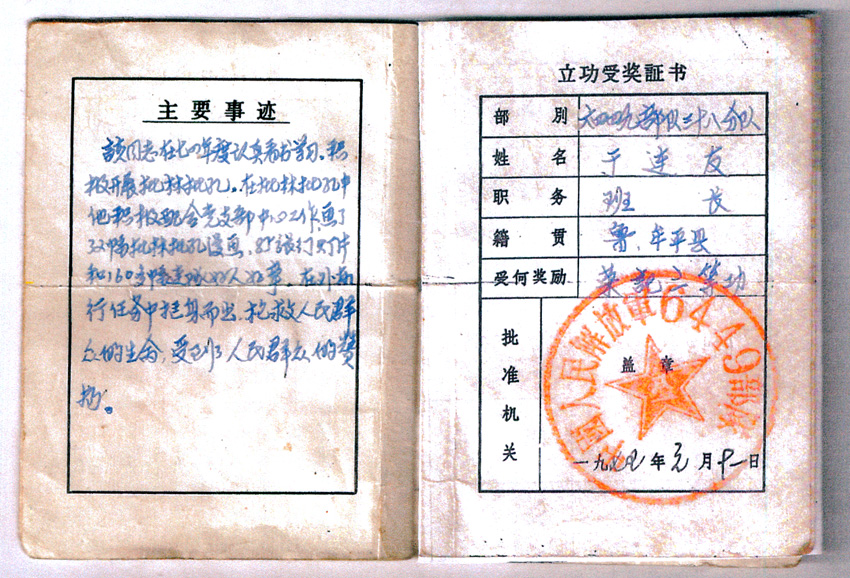 主要事迹
該同志在七四年度认真看书学习。积
极开展批林批孔。在批林批孔中
他积极配合党支部中心工作，画了
32幅批林批孔漫画，85张幻灯片
和160多幅连队好人好事。在外出
行任务中挺身而出，抢救人民群
众的生命，受到了人民群众的赞
扬。
立功受奖証书
部別 六四四九部队二十八分队
姓名 于连友
职务 班长
籍贯 鲁、牟平县
受何奖励 荣记三等功
批准机关
盖章
中國人民解放軍6449部隊
一九 年元月十一日